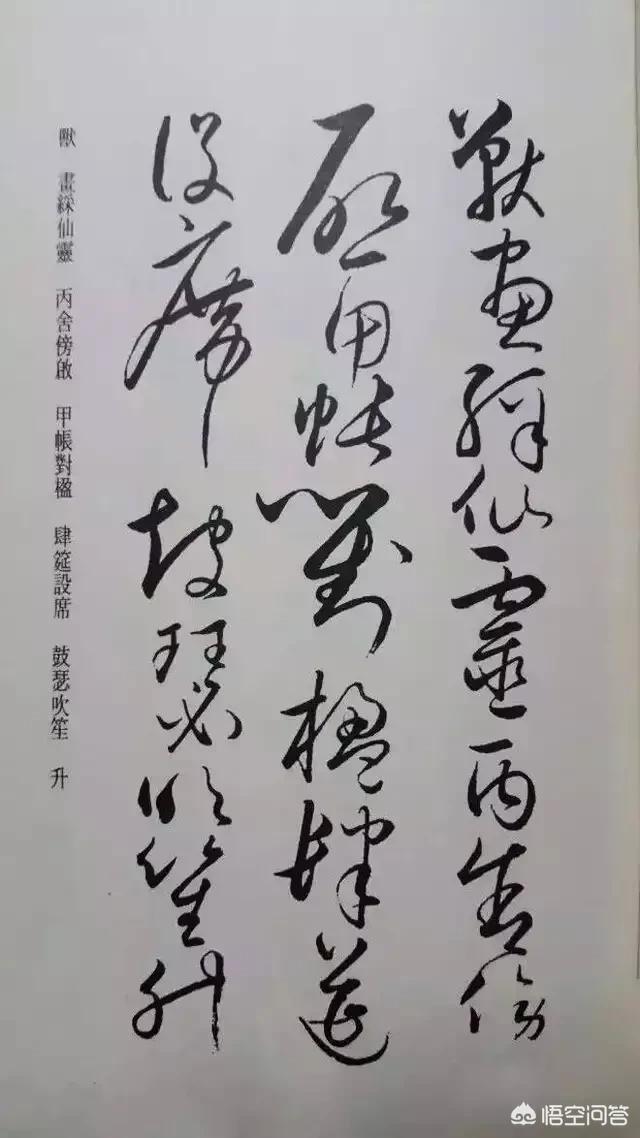 獸畫綵仙靈丙舍傍
啟甲帳對楹肆筵
設席鼓瑟吹笙升
獸 畫綵仙靈 丙舍傍啟 甲帳對楹 肆筵設席 鼓瑟吹笙 升
悟空问答